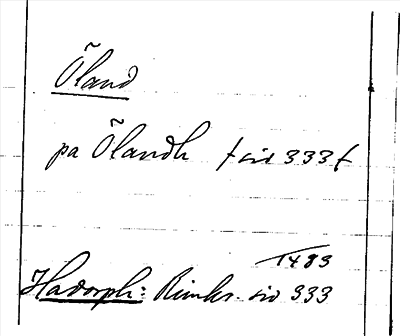 Öland
pa Ölandh (sid 333)
1483
Hadorph: Rimkr. sid 333